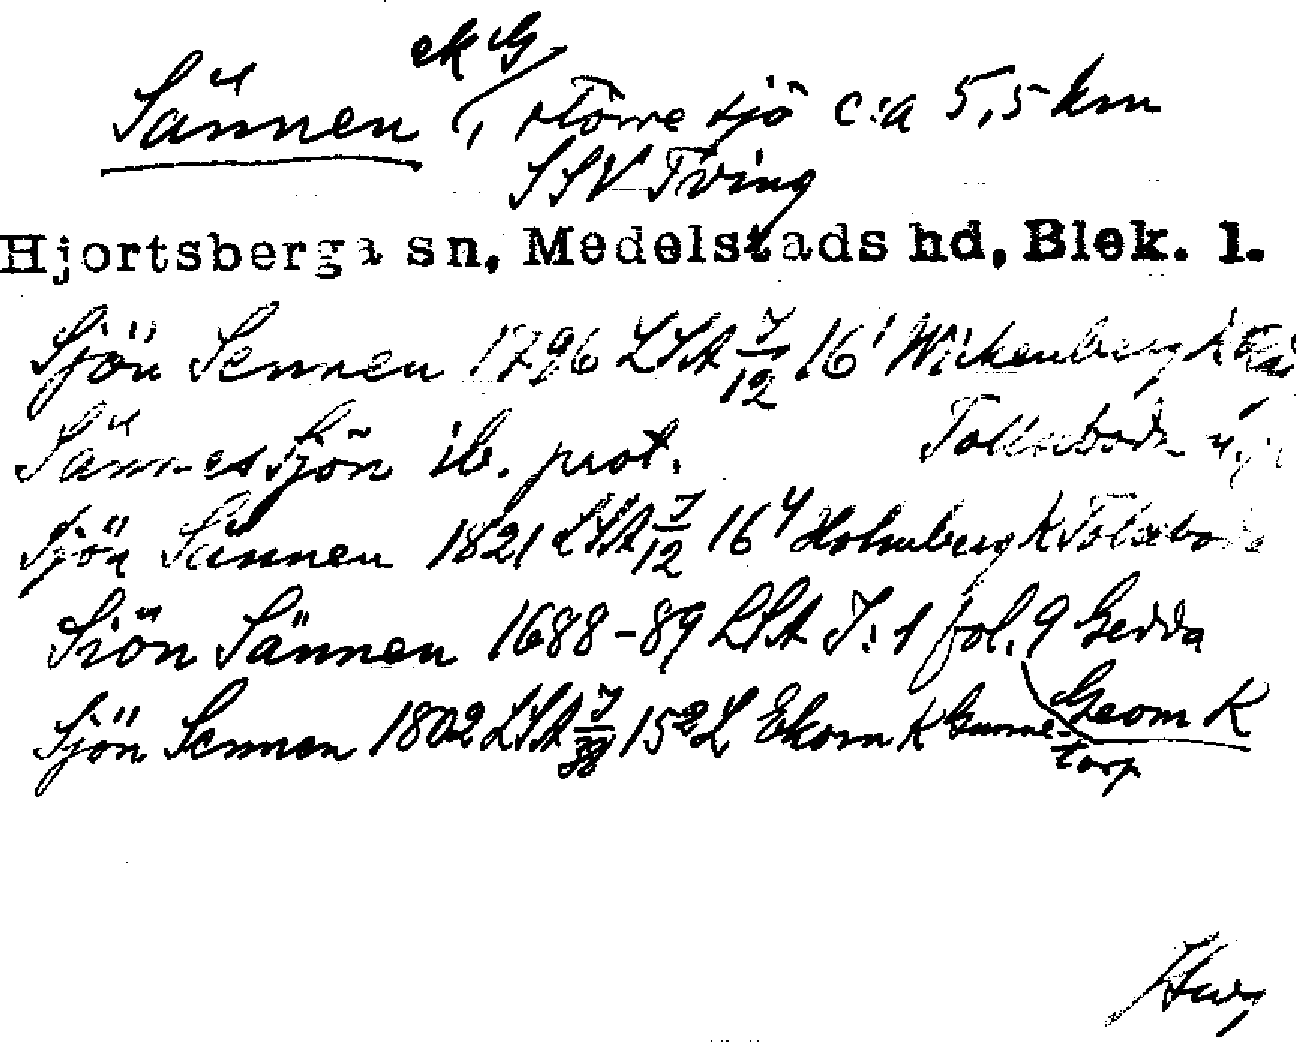 ek G
Sännen, större sjö c:a 5,5 km
SSV Tving
Hjortsberga sn, Medelstads hd, Blek. l.
Sjön Sennen 1796 LSA J/12 16¹ Wickenberg K
Sännessjön ib. prot. Tolseboda
Sjön Sännen 1821 LSA J/12 16⁴ Holmberg K Tolseboda
Siön Sännen 1688-89 LSA J:1 fol. 9 Gedda
Geom K
Sjön Sennen 1802 LSA J/38 15² L Ekorn K Gunne-
torp